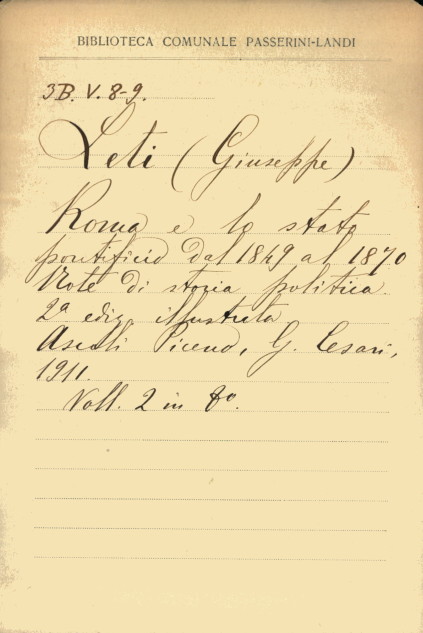 BIBLIOTECA COMUNALE PASSERINI-LANDI
3B. V. 8-9.
Leti (Giuseppe)
Roma e lo stato
pontificio dal 1849 al 1870
Note di storia politica.
2a ediz. illustrata
Ascoli Piceno, G. Cesari,
1911.
Voll. 2 in 8o.